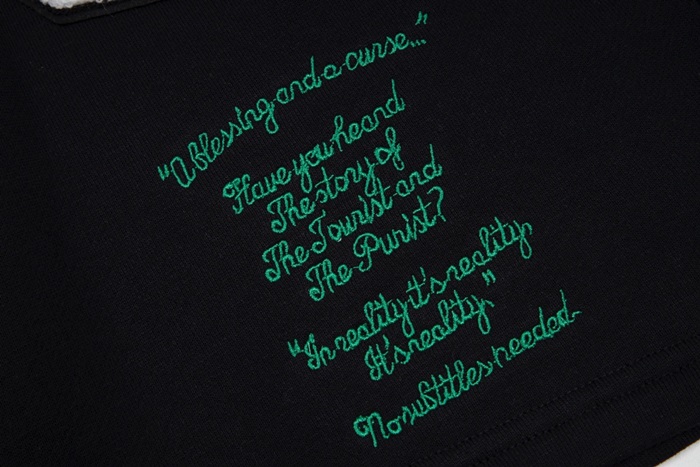 "A blessing and a curse..."
Have you heard
The story of
The Tourist and
The Purist?
"In reality it's reality,
It's reality."
No subtitles needed.